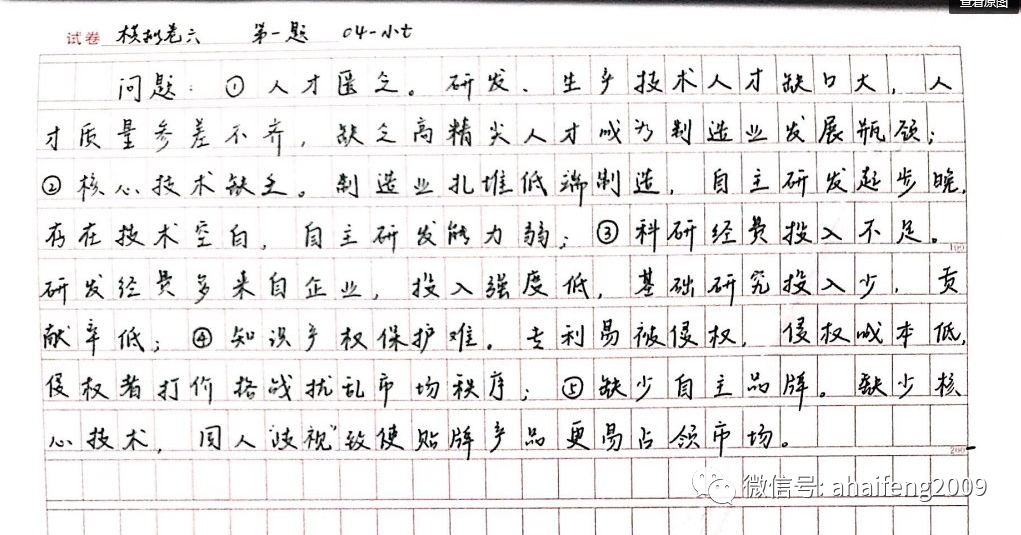 查看原图
试卷 模拟卷六 第一题 04-小七
问题：①人才匮乏。研发、生产技术人才缺口大，人
才质量参差不齐，缺乏高精尖人才成为制造业发展瓶颈；
②核心技术缺乏。制造业扎堆低端制造，自主研发起步晚，
存在技术空白，自主研发能力弱；③科研经费投入不足。
100
研发经费多来自企业，投入强度低，基础研究投入少，贡
献率低；④知识产权保护难。专利易被侵权，侵权成本低，
侵权者打价格战扰乱市场秩序；⑤缺少自主品牌。缺少核
心技术，国人“歧视”致使贴牌产品更易占领市场。
200
微信号: ahaifeng2009